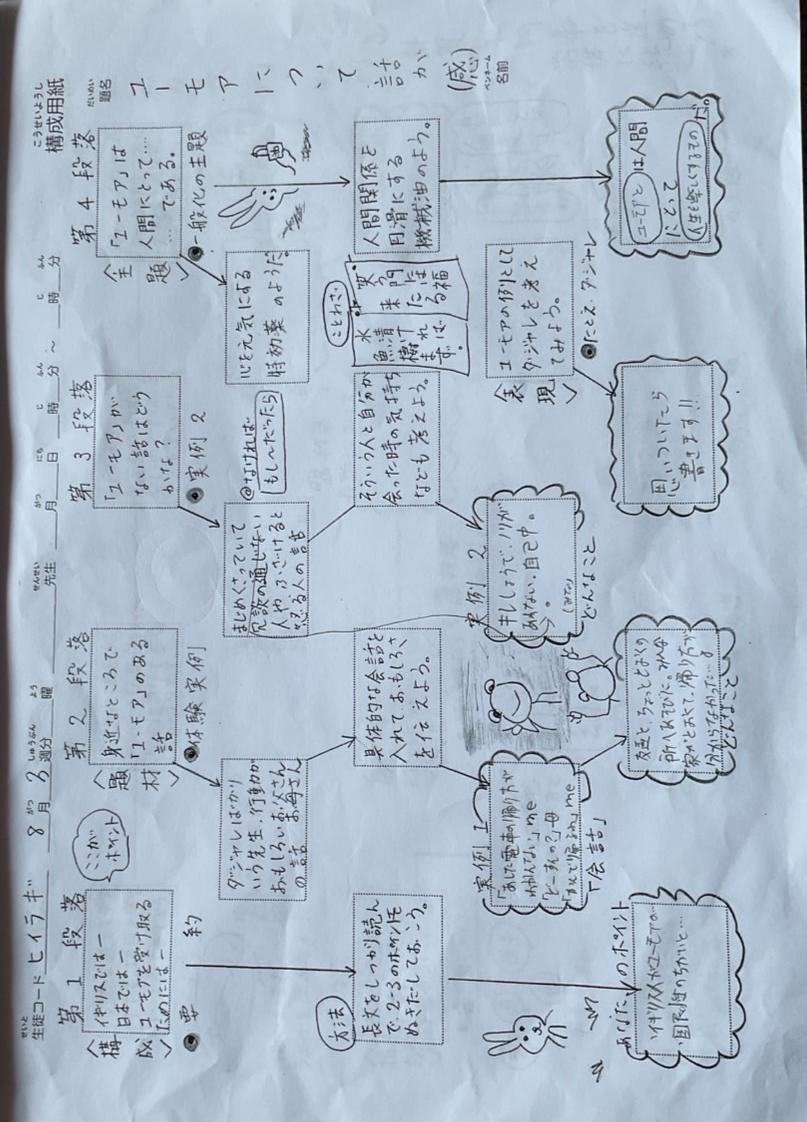 構成用紙
こうせいようし
題名
だいめい
ユーモアについて話が(感)
ペンネーム
名前
生徒コード ヒイラギ 8月3週分 曜 先生 月 日 時 分 ～ 時 分
せいと がつ しゅうぶん よう せんせい がつ にち じ ふん じ ふん
第1段落
〈構成〉
イギリスではー
日本ではー
ユーモアを受け取る
ためにはー
ここが
ポイント
●要約
方法
長文をしっかり読ん
で、2〜3のポイントを
ぬきだしておこう。
あなたのポイント
イギリス人がユーモアな
国民性のちがいと…
第2段落
〈題材〉
身近なところで
「ユーモア」のある
話
●体験実例
ダジャレばかり
いう先生、行動が
おもしろいお父さん
お母さん
の話
具体的な会話を
入れておもしろさ
を伝えよう。
実例1
「あした電車の帰り方が
わかんない」me
「どーすんの?」母
me
「会話」
友達と、ちょっととおくの
所へあそびに。みんな
家がとおくて、帰り方が
分からなかった…
どんなこと
第3段落
「ユーモア」が
ない話はどう
かな?
●実例2
@なければ
もし〜だったら
まじめくさっていて
冗談の通じない
人や、ふざけると
怒る人の話
そういう人と自分が
会った時の気持ち
なども考えよう。
実例2
キレしょうで、ノリが
あわない、自己中。
どんなこと
第4段落
〈主題〉
「ユーモア」は
人間にとって……
…である。
●一般化の主題
心を元気にする
時効薬のようだ。
人間関係を
円滑にする
機械油のよう。
ことわざ
笑う
門には
福
来たる
水清ければ
魚棲まず。
〈表現〉
ユーモアの例として
ダジャレを考え
てみよう。
●たとえ・ダジャレ
思いついたら
書きます!!
ユーモアとは人間
にとって
人生を楽しくするもの
だ。